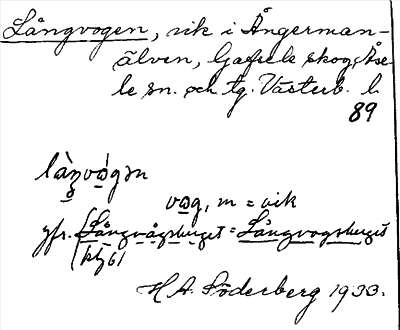 Långvogen, vik i Ångerman-
älven, Gafsele skog, Åse-
le sn. och tg. Västerb. l.
89
làŋvógən
vog, m = vik
jfr. Långvågsberget = Långvogsberget
bl. 61
H. A. Söderberg 1933.